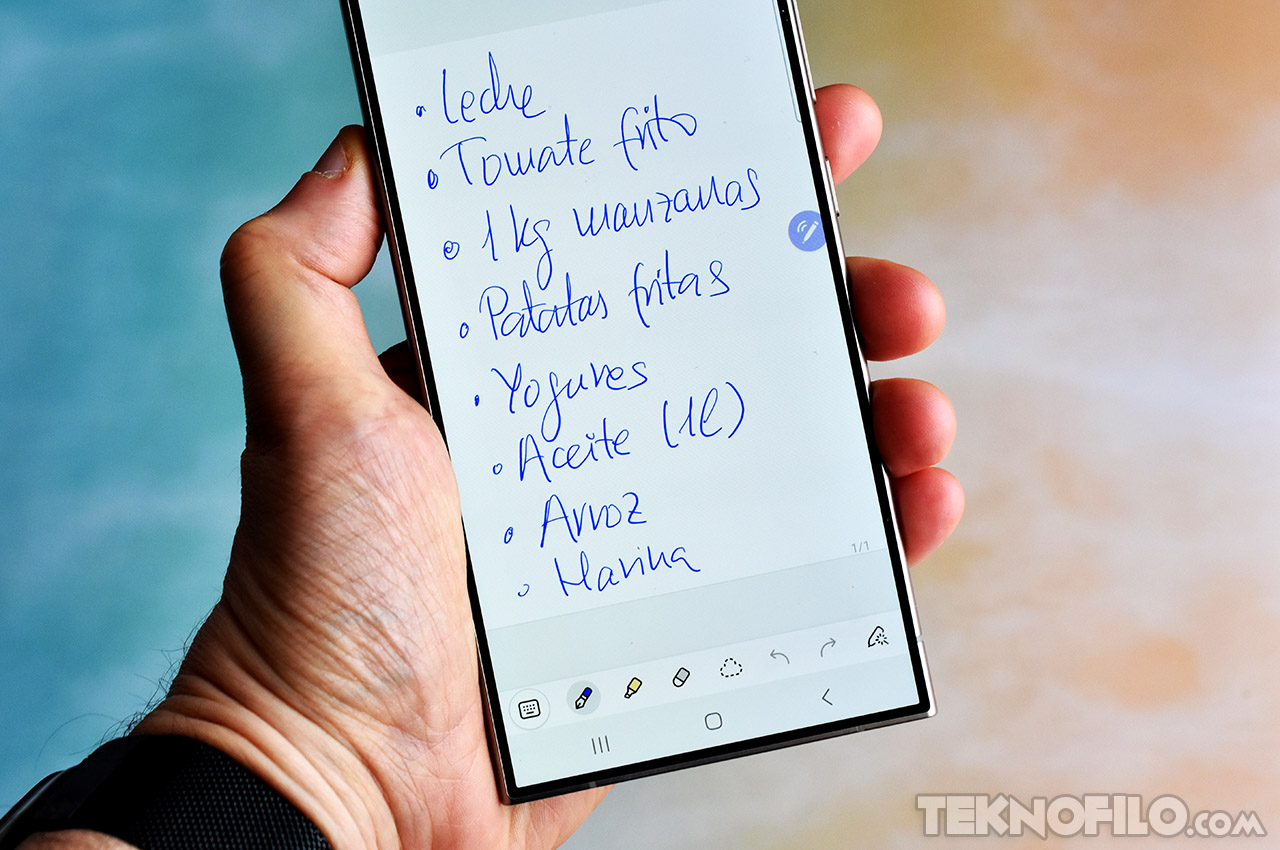 • Leche
• Tomate frito
• 1 kg manzanas
• Patatas fritas
• Yogures
• Aceite (1l)
• Arroz
• Harina
1/1
TEKNOFILO.COM